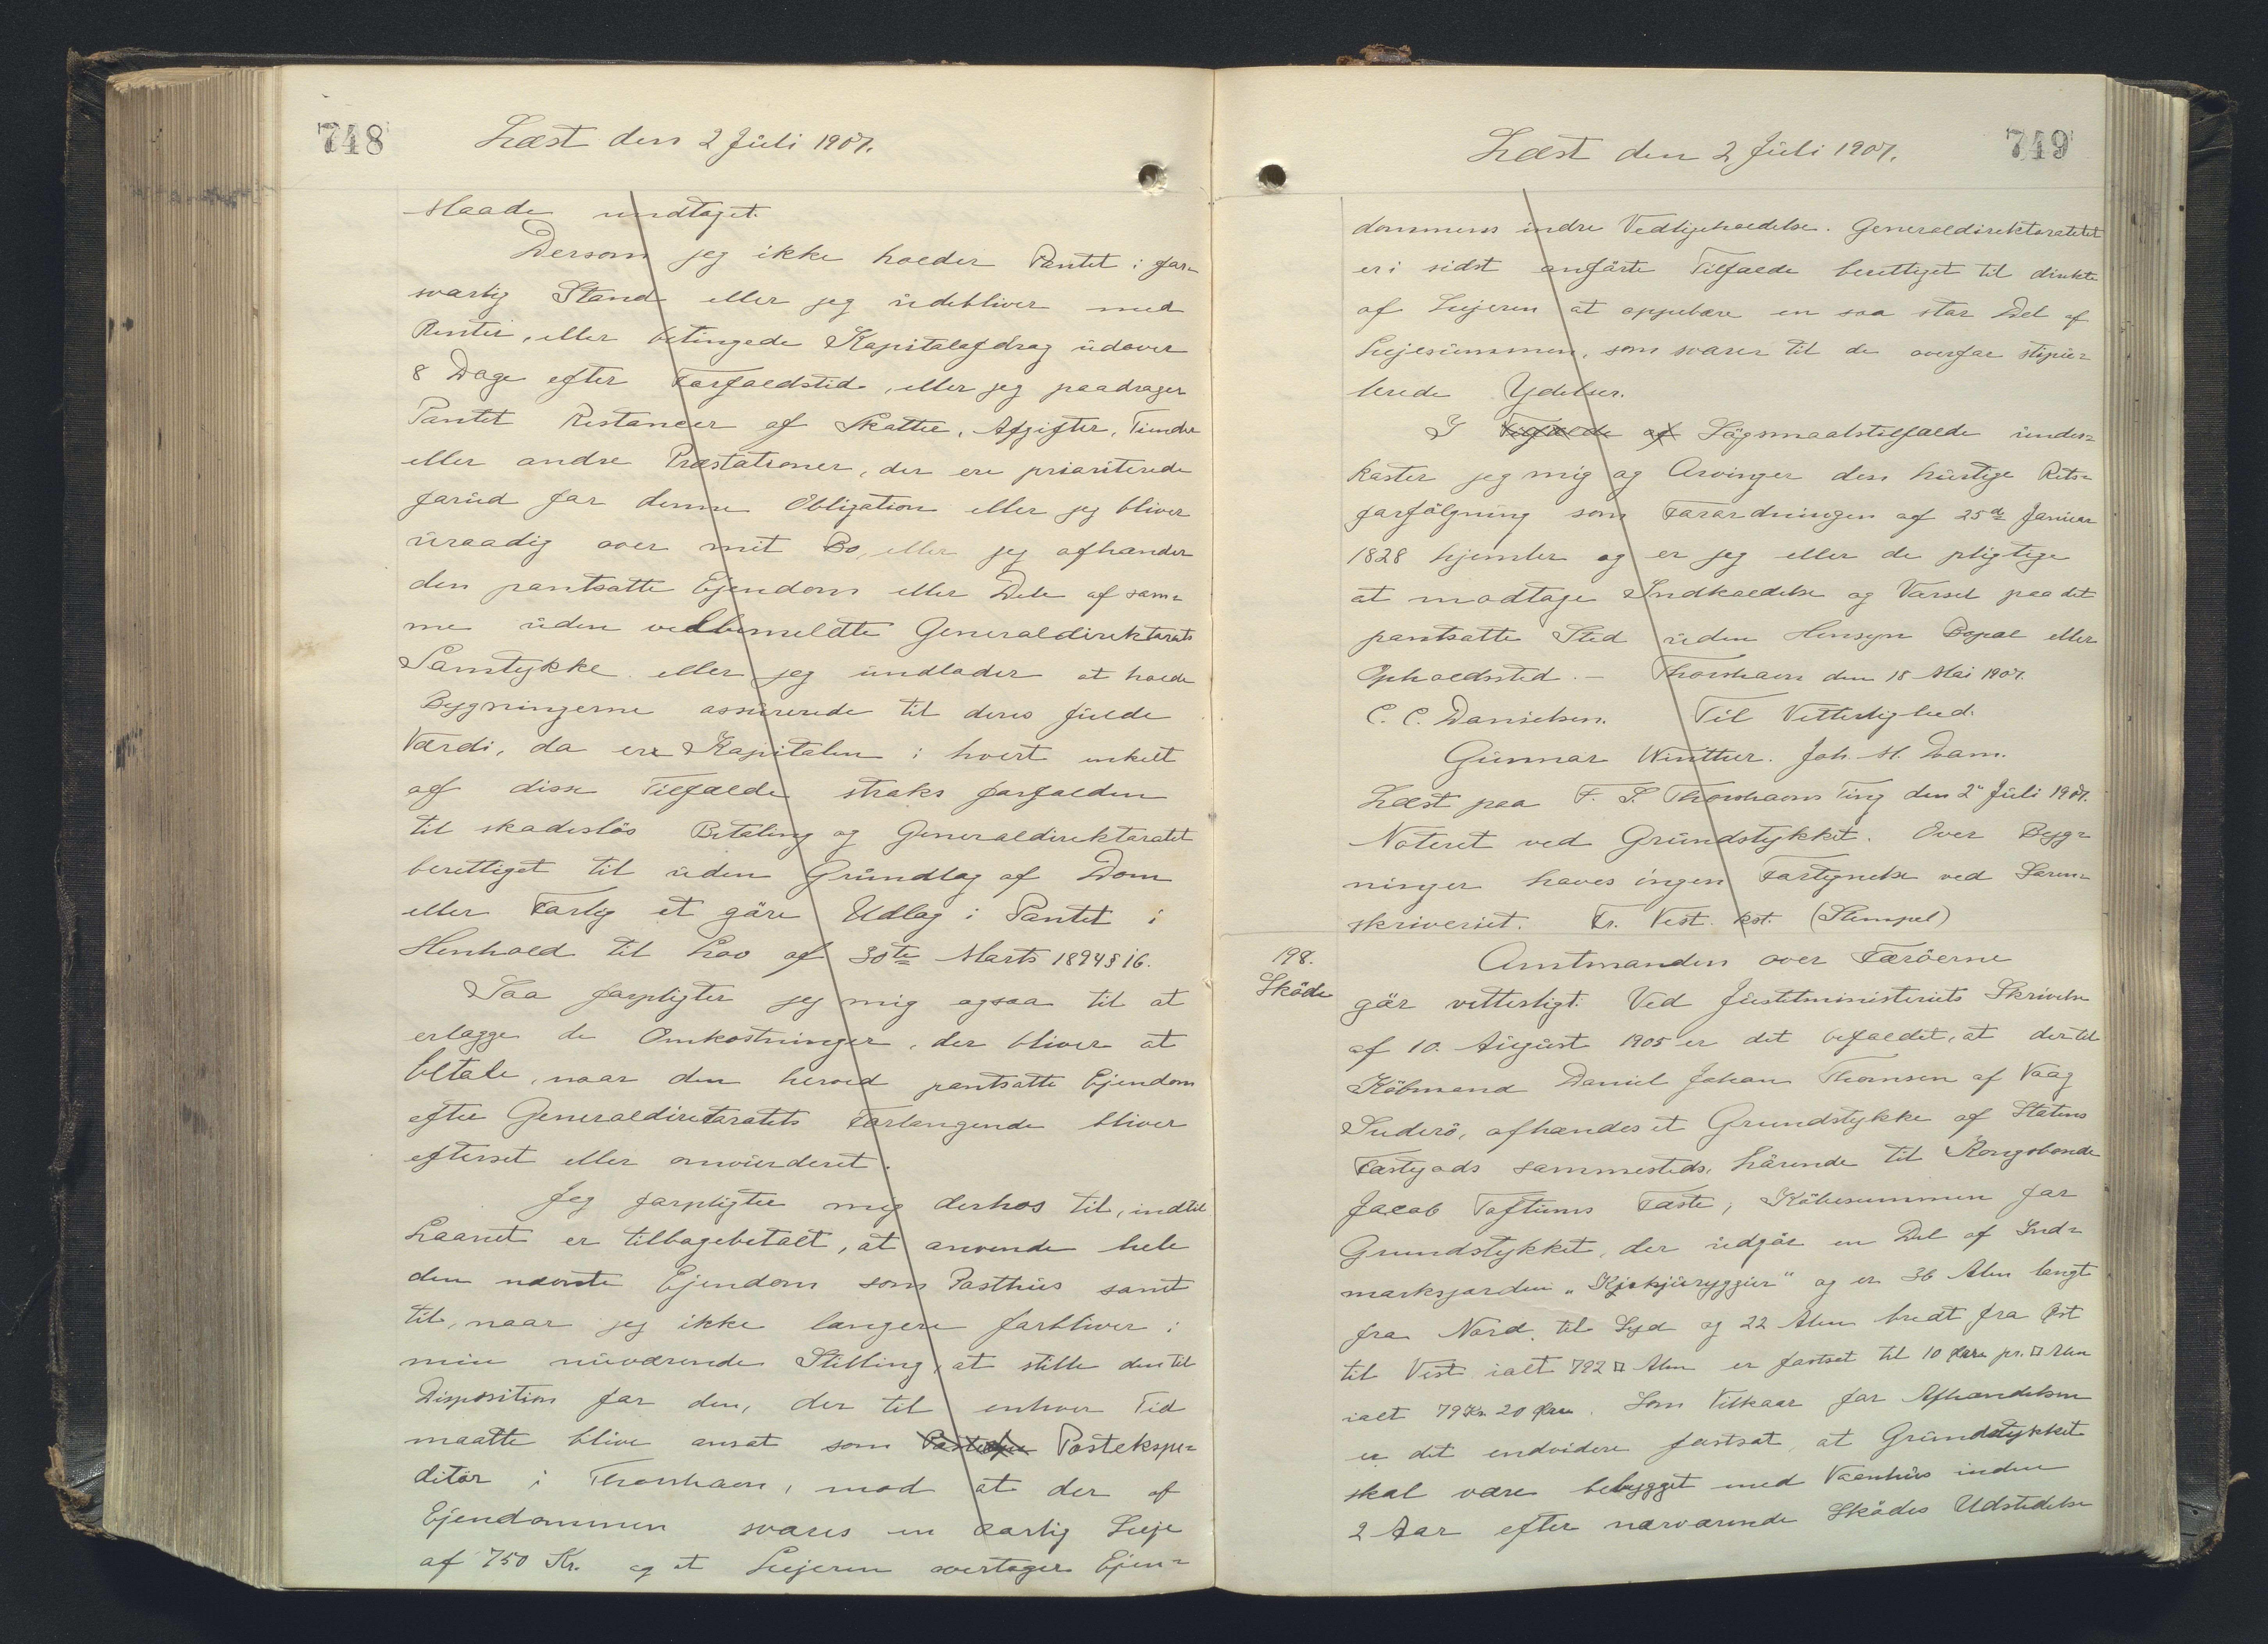 748
Læst den 2 Juli 1907.
Maade undtaget.
Dersom jeg ikke holder Pantet i for-
svarlig Stand eller jeg udebliver med
Renter, eller betingede Kapitalafdrag udover
8 Dage efter Forfaldstid, eller jeg paadrager
Pantet Restancer af Skatter, Afgifter, Tiender
eller andre Præstationer, der ere prioriterede
forud for denne Obligation eller jeg bliver
uraadig over mit Bo, eller jeg afhænder
den pantsatte Ejendom eller Dele af sam-
me uden velbemeldte Generaldirektorats
Samtykke eller jeg undlader at holde
Bygningerne assurerede til deres fulde
Værdi, da er Kapitalen i hvert enkelt
af disse Tilfælde straks forfalden
til skadeslös Betaling og Generaldirektoratet
berettiget til uden Grundlag af Dom
eller Forlig at göre Udlæg i Pantet i
Henhold til Lov af 30te Marts 1894 § 16.
Saa forpligter jeg mig ogsaa til at
erlægge de Omkostninger, der bliver at
betale, naar den herved pantsatte Ejendom
efter Generaldirectoratets Forlangende bliver
efterset eller omvurderet.
Jeg forpligter mig derhos til, indtil
Laanet er tilbagebetalt, at anvende hele
den nævnte Ejendom som Posthus samt
til, naar jeg ikke længere forbliver i
min nuværende Stilling, at stille den til
Disposition for den, der til enhver Tid
maatte blive ansat som Postekspe-
ditör i Thorshavn, mod at der af
Ejendommen svares en aarlig Leje
af 750 Kr. og at Lejeren overtager Ejen-
749
Læst den 2 Juli 1907.
dommens indre Vedligeholdelse. Generaldirektoratetet
er i sidst anförte Tilfælde berettiget til direkte
af Lejeren at oppebære en saa stor Del af
Lejesummen, som svarer til de ovenfor stipu-
lerede Ydelser.
I Tilfælde af Sögsmaalstilfælde under-
kaster jeg mig og Arvinger den hurtige Rets-
forfölgning som Forordningen af 25de Januar
1828 hjemler og er jeg eller de pligtige
at modtage Indkaldelse og Varsel paa det
pantsatte Sted uden Hensyn Bopæl eller
Opholdssted. - Thorshavn den 18 Mai 1907.
C. C. Danielsen. Til Vitterlighed.
Gunnar Winther. Joh. M. Dam.
Læst paa F. S. Thorshavns Ting den 2" Juli 1907.
Noteret ved Grundstykket. Over Byg-
ninger haves ingen Fortegnelse ved Soren-
skriveriet. Fr. Vest. kst. (Stempel)
198.
Sköde
Amtmanden over Færöerne
gör vitterligt: Ved Justitministeriets Skrivelse
af 10. August 1905 er det befaldet, at der til
Köbmand Daniel Johan Thomsen af Vaag
Suderö, afhændes et Grundstykke af Statens
Fæstegods sammesteds, hörende til Kongsbonde
Jacob Toftums Fæste; Köbesummen for
Grundstykket, der udgör en Del af Ind-
marksjorden "Kjrkjuryggur" og er 36 Alen langt
fra Nord til Syd og 22 Alen bredt fra Öst
til Vest ialt 792 □ Alen er fastsat til 10 Öre pr. □ Alen
ialt 79 Kr. 20 Öre. Som Vilkaar for Afhændelsen
er det endvidere fastsat, at Grundstykket
skal være bebygget med Vaanhus inden
2 Aar efter nærværende Sködes Udstedelse